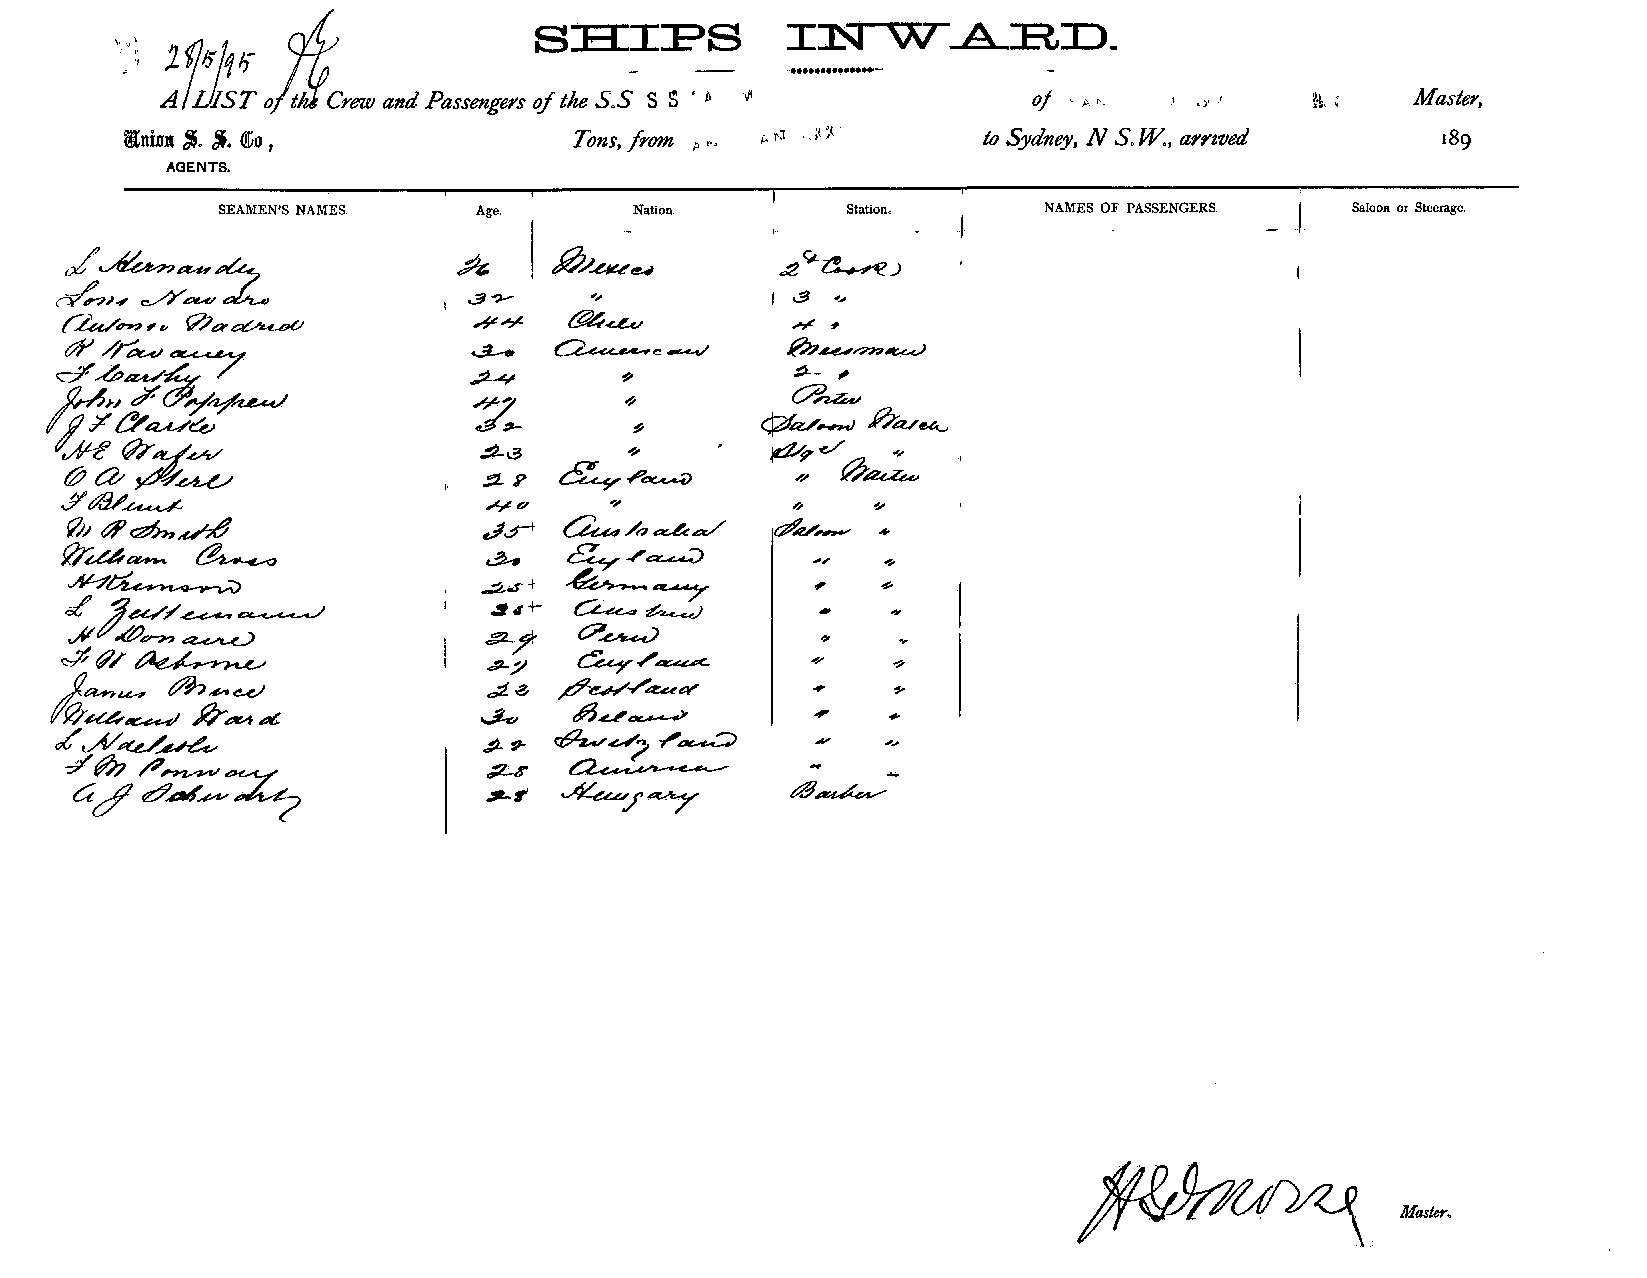 SHIPS INWARD.
28/5/95
A LIST of the Crew and Passengers of the S.S S S of Master,
Union S. S. Co, Tons, from to Sydney, N S.W., arrived 189
AGENTS.
SEAMEN'S NAMES. Age. Nation. Station. NAMES OF PASSENGERS. Saloon or Steerage.
L Hernandez 26 Mexico 2d Cook
Navaro 32 " 3 "
Antonio Madrid 44 Chile 4 "
K Kavaney 30 American Messman
F Carthy 24 " 2 "
John F Poppen 47 " Porter
J F Clarke 32 " Saloon Watch
H E Wafer 23 " "
O A England " Waiter
F Blunt 40 " " "
M R Smith 35 Australia Saloon "
William Cross 30 England " "
H Kremson 25 Germany " "
L 35 Austria " "
H Donaire 29 Peru " "
F W Osborne 27 England " "
James Bruce 23 Scotland " "
William Ward 30 Ireland " "
L 22 Switzland " "
F M Conway 28 America " "
A J Schwartz 28 Hungary Barber
Master.